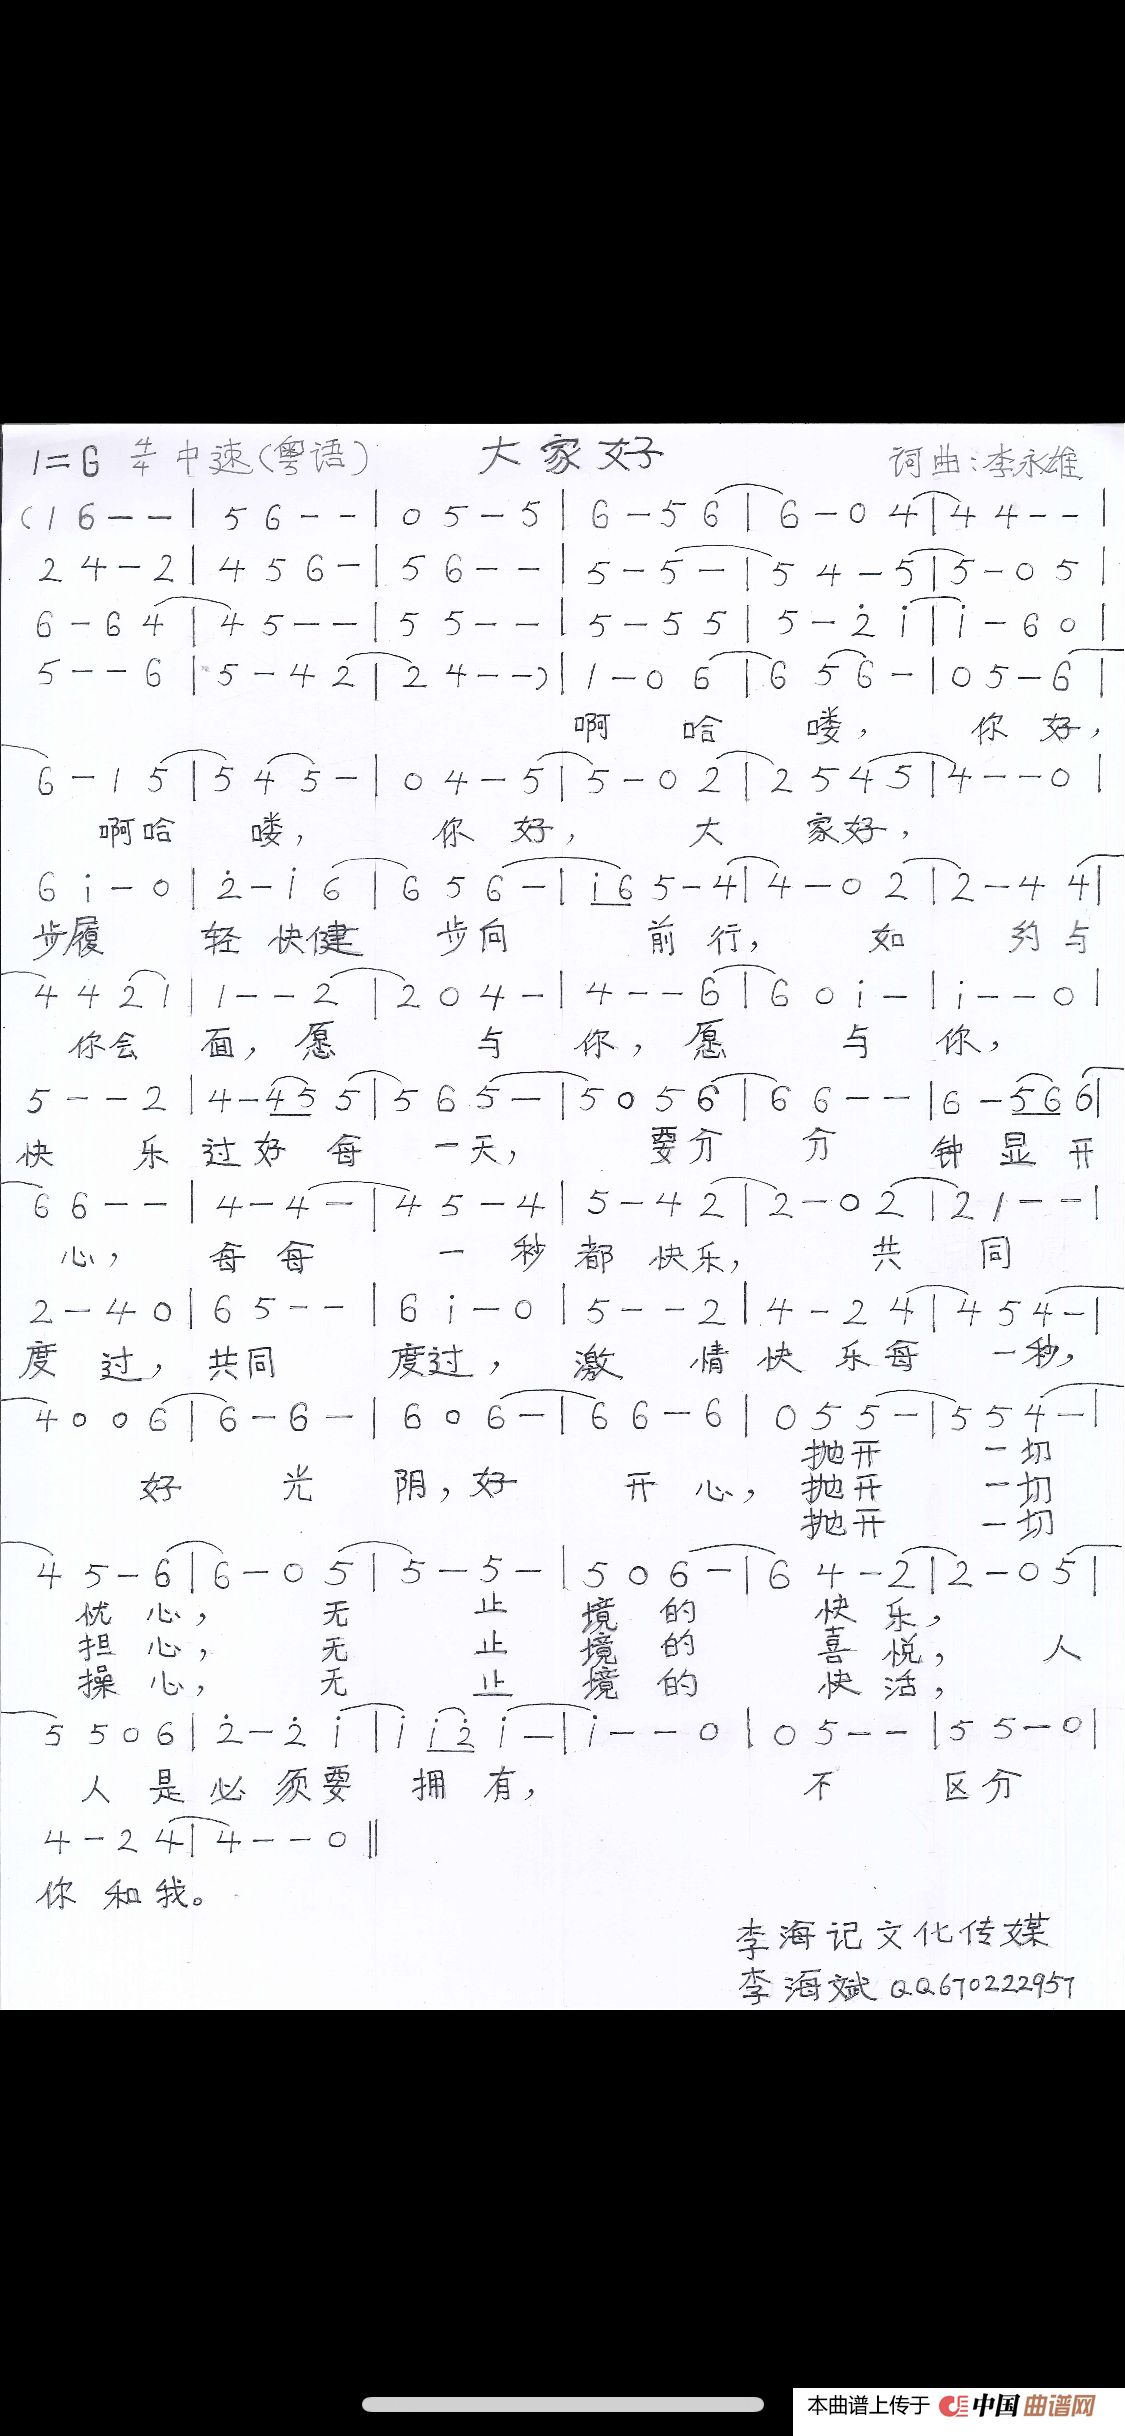 1=G 4/4 中速(粤语) 大家好 词曲:李永雄
(1 6 - - | 5 6 - - | 0 5 - 5 | 6 - 5 6 | 6 - 0 4 | 4 4 - - |
2 4 - 2 | 4 5 6 - | 5 6 - - | 5 - 5 - | 5 4 - 5 | 5 - 0 5 |
6 - 6 4 | 4 5 - - | 5 5 - - | 5 - 5 5 | 5 - 2̇ i | i - 6 0 |
5 - - 6 | 5 - 4 2 | 2 4 - -) | 1 - 0 6 | 6 5 6 - | 0 5 - 6 |
啊 哈 喽, 你 好,
6 - 1 5 | 5 4 5 - | 0 4 - 5 | 5 - 0 2 | 2 5 4 5 | 4 - - 0 |
啊哈 喽, 你 好, 大 家好,
6 i - 0 | 2̇ - i 6 | 6 5 6 - | i6 5 - 4 | 4 - 0 2 | 2 - 4 4 |
步履 轻 快健 步向 前 行, 如 约 与
4 4 2 1 | 1 - - 2 | 2 0 4 - | 4 - - 6 | 6 0 i - | i - - 0 |
你会 面, 愿 与 你, 愿 与 你,
5 - - 2 | 4 - 45 5 | 5 6 5 - | 5 0 5 6 | 6 6 - - | 6 - 56 6 |
快 乐 过好 每 一天, 要分 分 钟 显 开
6 6 - - | 4 - 4 - | 4 5 - 4 | 5 - 4 2 | 2 - 0 2 | 2 1 - - |
心, 每 每 一 秒 都 快乐, 共 同
2 - 4 0 | 6 5 - - | 6 i - 0 | 5 - - 2 | 4 - 2 4 | 4 5 4 - |
度 过, 共同 度过, 激 情 快 乐 每 一秒,
4 0 0 6 | 6 - 6 - | 6 0 6 - | 6 6 - 6 | 0 5 5 - | 5 5 4 - |
抛开 一切
好 光 阴, 好 开 心, 抛开 一切
抛开 一切
4 5 - 6 | 6 - 0 5 | 5 - 5 - | 5 0 6 - | 6 4 - 2 | 2 - 0 5 |
忧 心, 无 止 境 的 快 乐,
担 心, 无 止 境 的 喜 悦, 人
操 心, 无 止 境 的 快 活,
5 5 0 6 | 2̇ - 2̇ i | i i2̇ i - | i - - 0 | 0 5 - - | 5 5 - 0 |
人 是 必 须 要 拥 有, 不 区 分
4 - 2 4 | 4 - - 0 ‖
你 和 我。
李海记文化传媒
李海斌 QQ670222957
本曲谱上传于 中国曲谱网